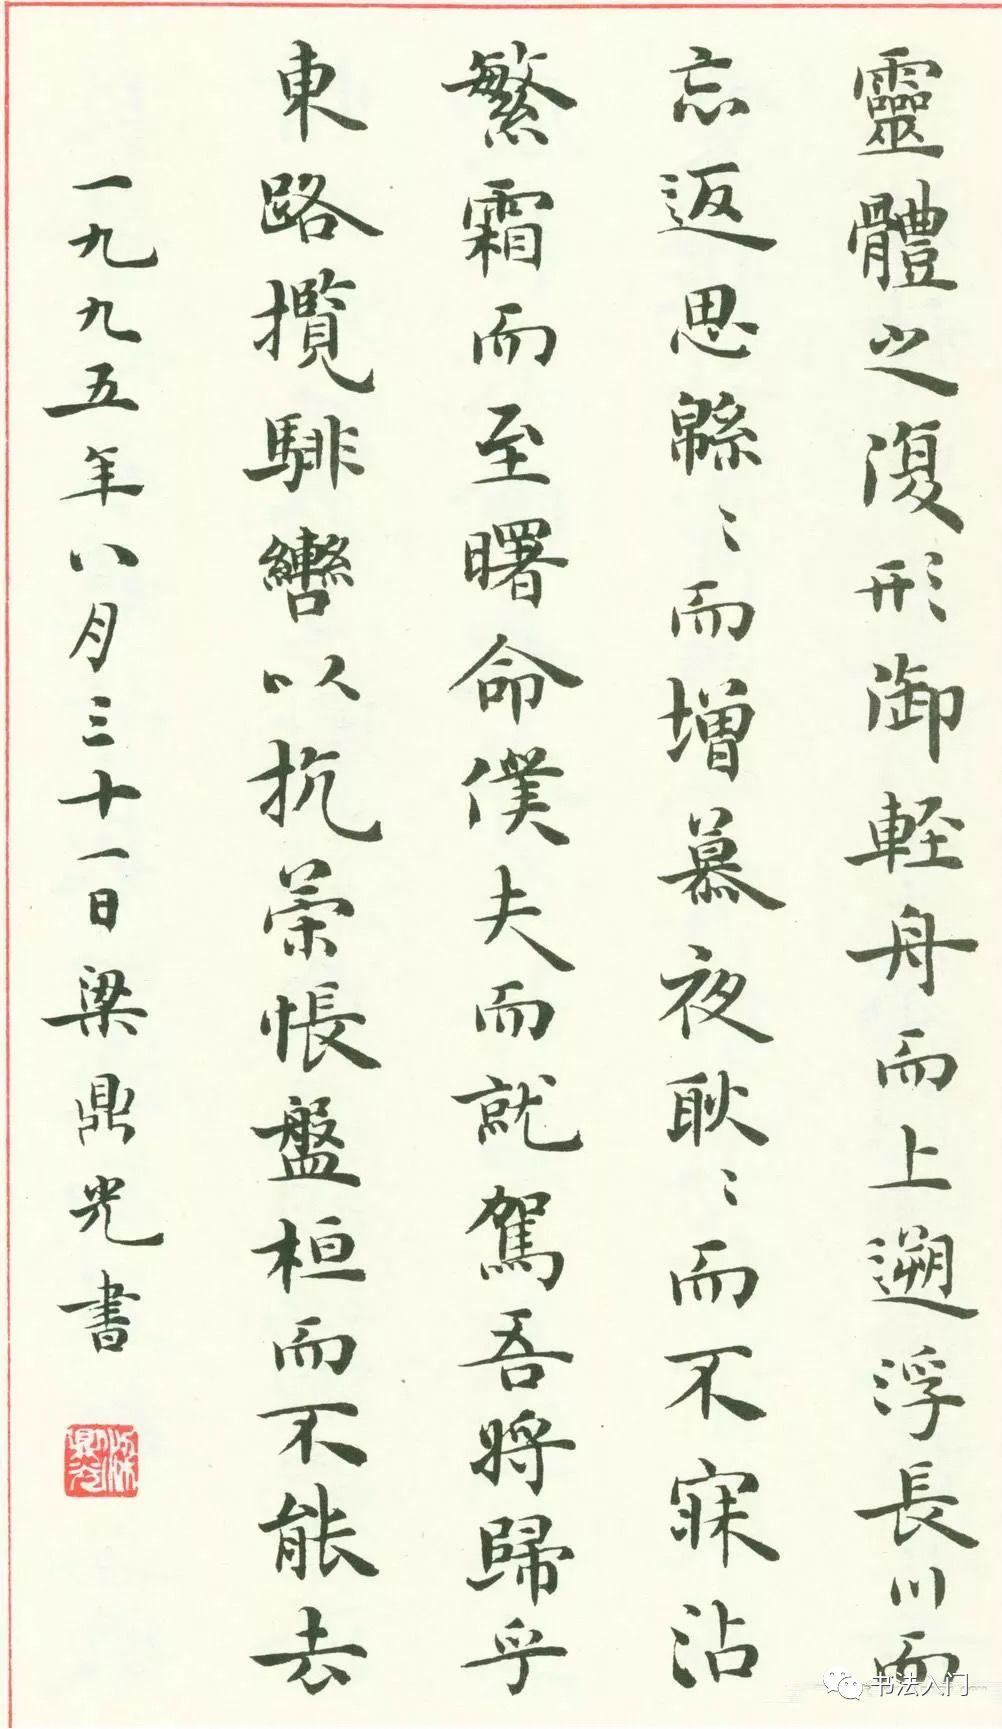 靈體之復形御輕舟而上遡浮長川而
忘返思緜〻而增慕夜耿〻而不寐沾
繁霜而至曙命僕夫而就駕吾將歸乎
東路攬騑轡以抗策悵盤桓而不能去
一九九五年八月三十一日梁鼎光書
梁鼎光
书法入门